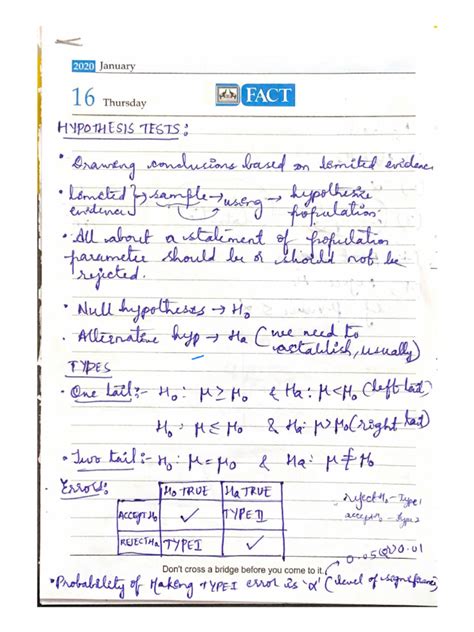 2020 January
16 Thursday
FACT
HYPOTHESIS TESTS:
• Drawing conclusions based on limited evidence
• limited evidence } → sample → using → hypothesize population.
• All about a statement of population
parameter should be or should not be
rejected.
• Null hypotheses → H₀
• Alternative hyp → Ha (we need to
establish, usually)
TYPES
• One tail:- H₀: μ ≥ μ₀ & Ha: μ < μ₀ (left tail)
H₀: μ ≤ μ₀ & Ha: μ > μ₀ (right tail)
• Two tail:- H₀: μ = μ₀ & Ha: μ ≠ μ₀
Errors:
H₀ TRUE Ha TRUE
ACCEPT H₀ ✓ TYPE II
REJECT Ha TYPE I ✓
reject H₀ - Type 1
accept - Type 2
Don't cross a bridge before you come to it.
0.05 (or) 0.01
• Probability of Making TYPE I error is 'α' (level of significance)